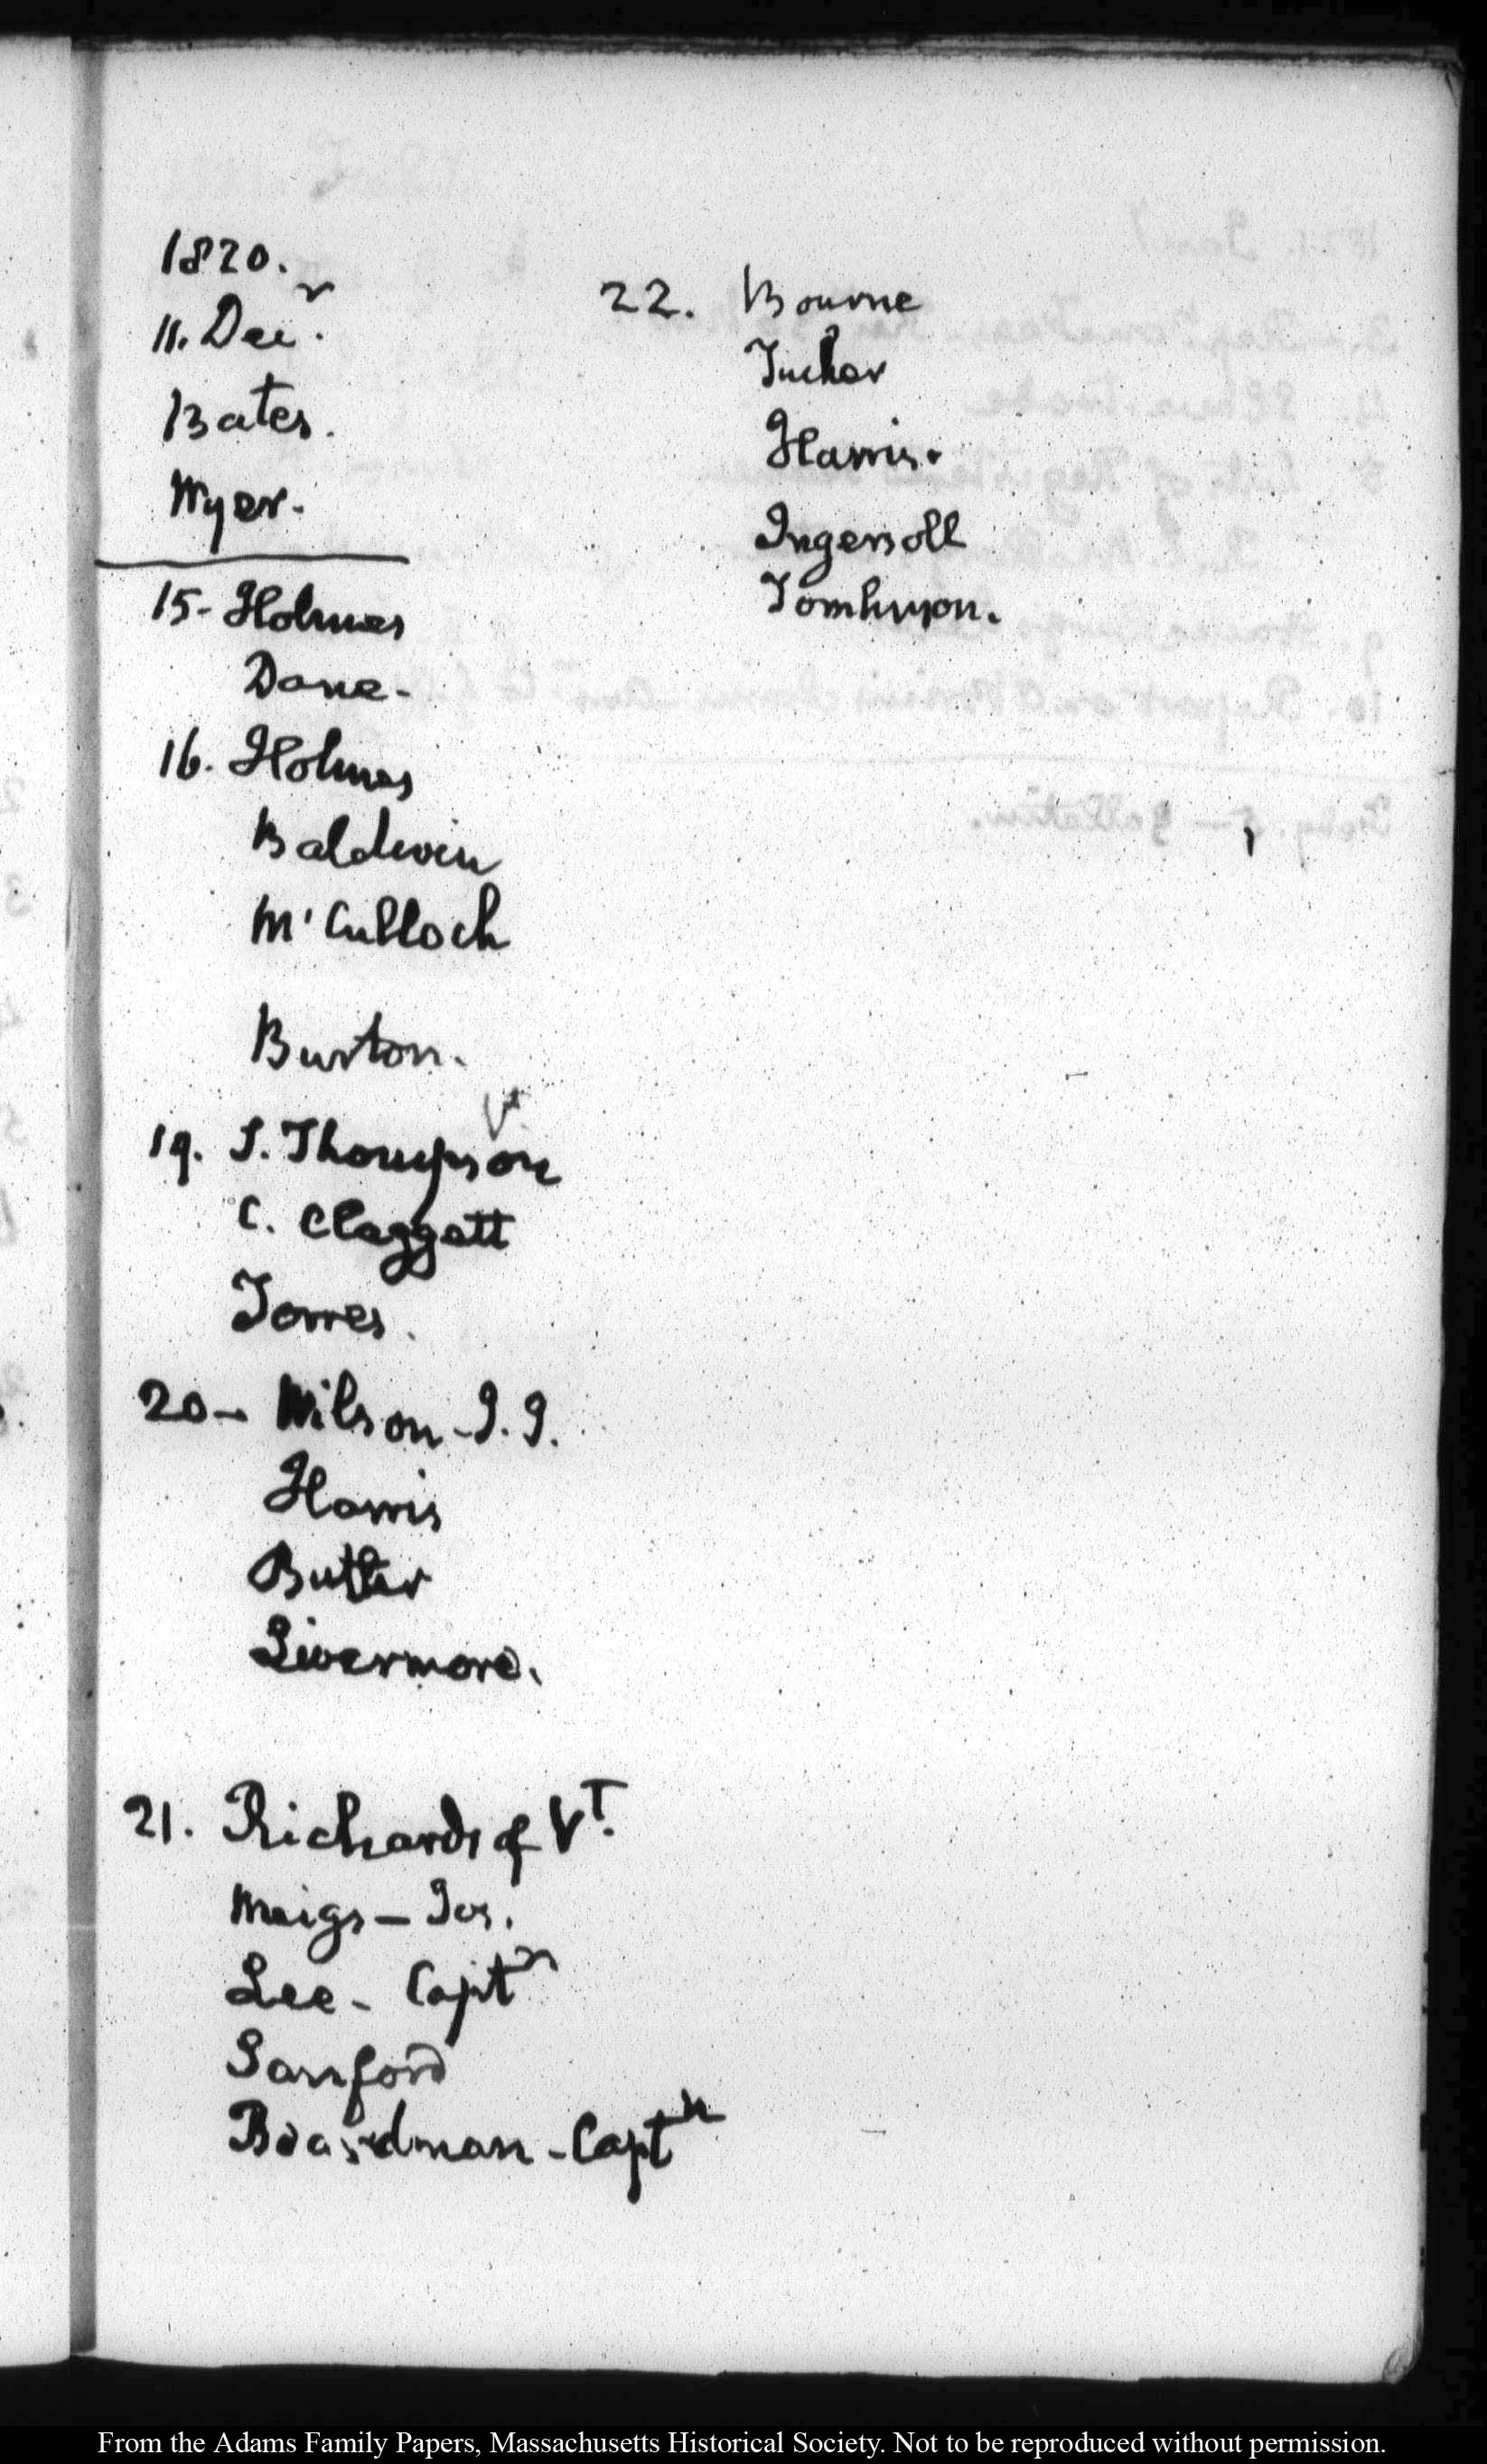 1820.
11. Decr.
Bates.
Wyer.
15- Holmes
Dane-
16. Holmes
Baldwin
M'Culloch
Burton.
Vt.
19. S. Thompson
C. Claggett
Torres.
20- Wilson-J.J.
Harris
Butler
Livermore.
21. Richards of VT.
Meigs - Jos.
Lee - Captn
Sanford
Boardman - Captn
22. Bourne
Tucker
Harris.
Ingersoll
Tomlinson.
From the Adams Family Papers, Massachusetts Historical Society. Not to be reproduced without permission.